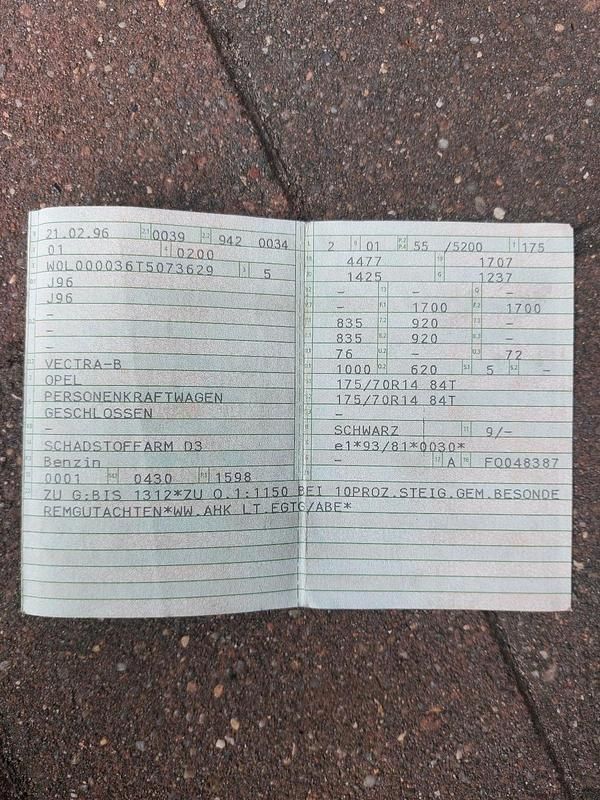 21.02.96 0039 942 0034
01 0200
W0L000036T5073629 5
J96
J96
-
-
-
VECTRA-B
OPEL
PERSONENKRAFTWAGEN
GESCHLOSSEN
-
SCHADSTOFFARM D3
Benzin
0001 0430 1598
2 01 55 /5200 175
4477 1707
1425 1237
- - -
- 1700 1700
835 920 -
835 920 -
76 - 72
1000 620 5 -
175/70R14 84T
175/70R14 84T
-
SCHWARZ 9/-
e1*93/81*0030*
- A FO048387
ZU G:BIS 1312*ZU O.1:1150 BEI 10PROZ.STEIG.GEM.BESONDE
REMGUTACHTEN*WW.AHK LT.EGTG/ABE*